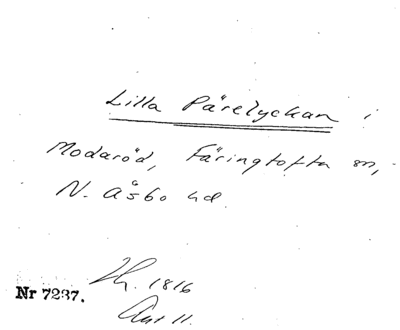 Lilla Pärelyckan i
Modaröd, Färingtofta sn,
N. Åsbo hd.
1816
Nr 7237.
11.